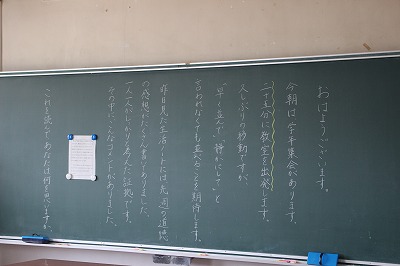 おはようございます。
今朝は学年集会があります。
二十五分に教室を出発します。
久しぶりの移動ですが、
「早く並んで」「静かにして」と
言われなくても並べることを期待します。
昨日見た生活ノートには先週の道徳
の感想がたくさん書いてありました。
一人一人がしっかり考えた証拠です。
その中に、こんなコメントがありました。
これを読んで、あなたは何を思いますか。